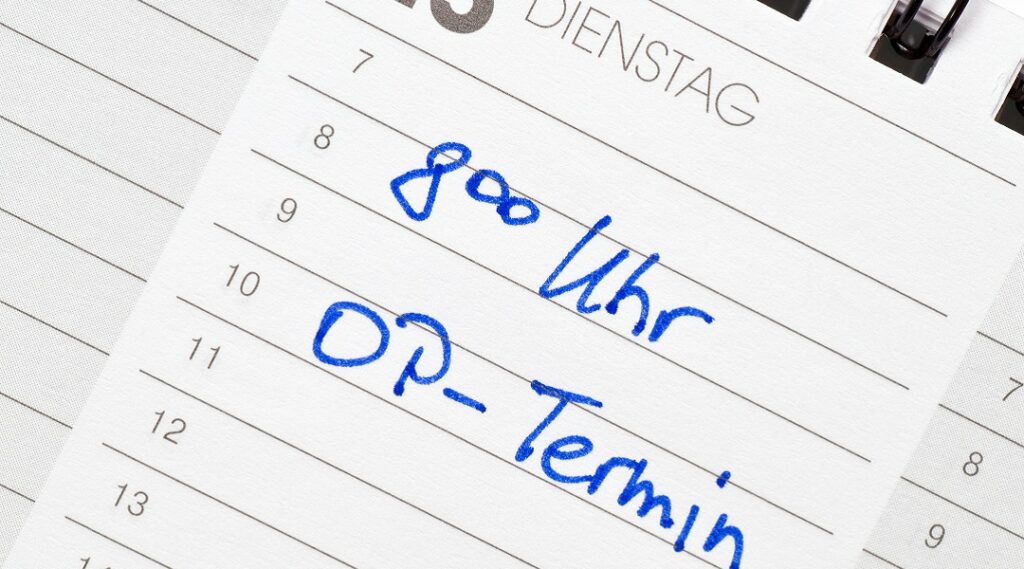 DIENSTAG
7
8
800 Uhr
9
10
OP-Termin
11
12
13
7
8
9